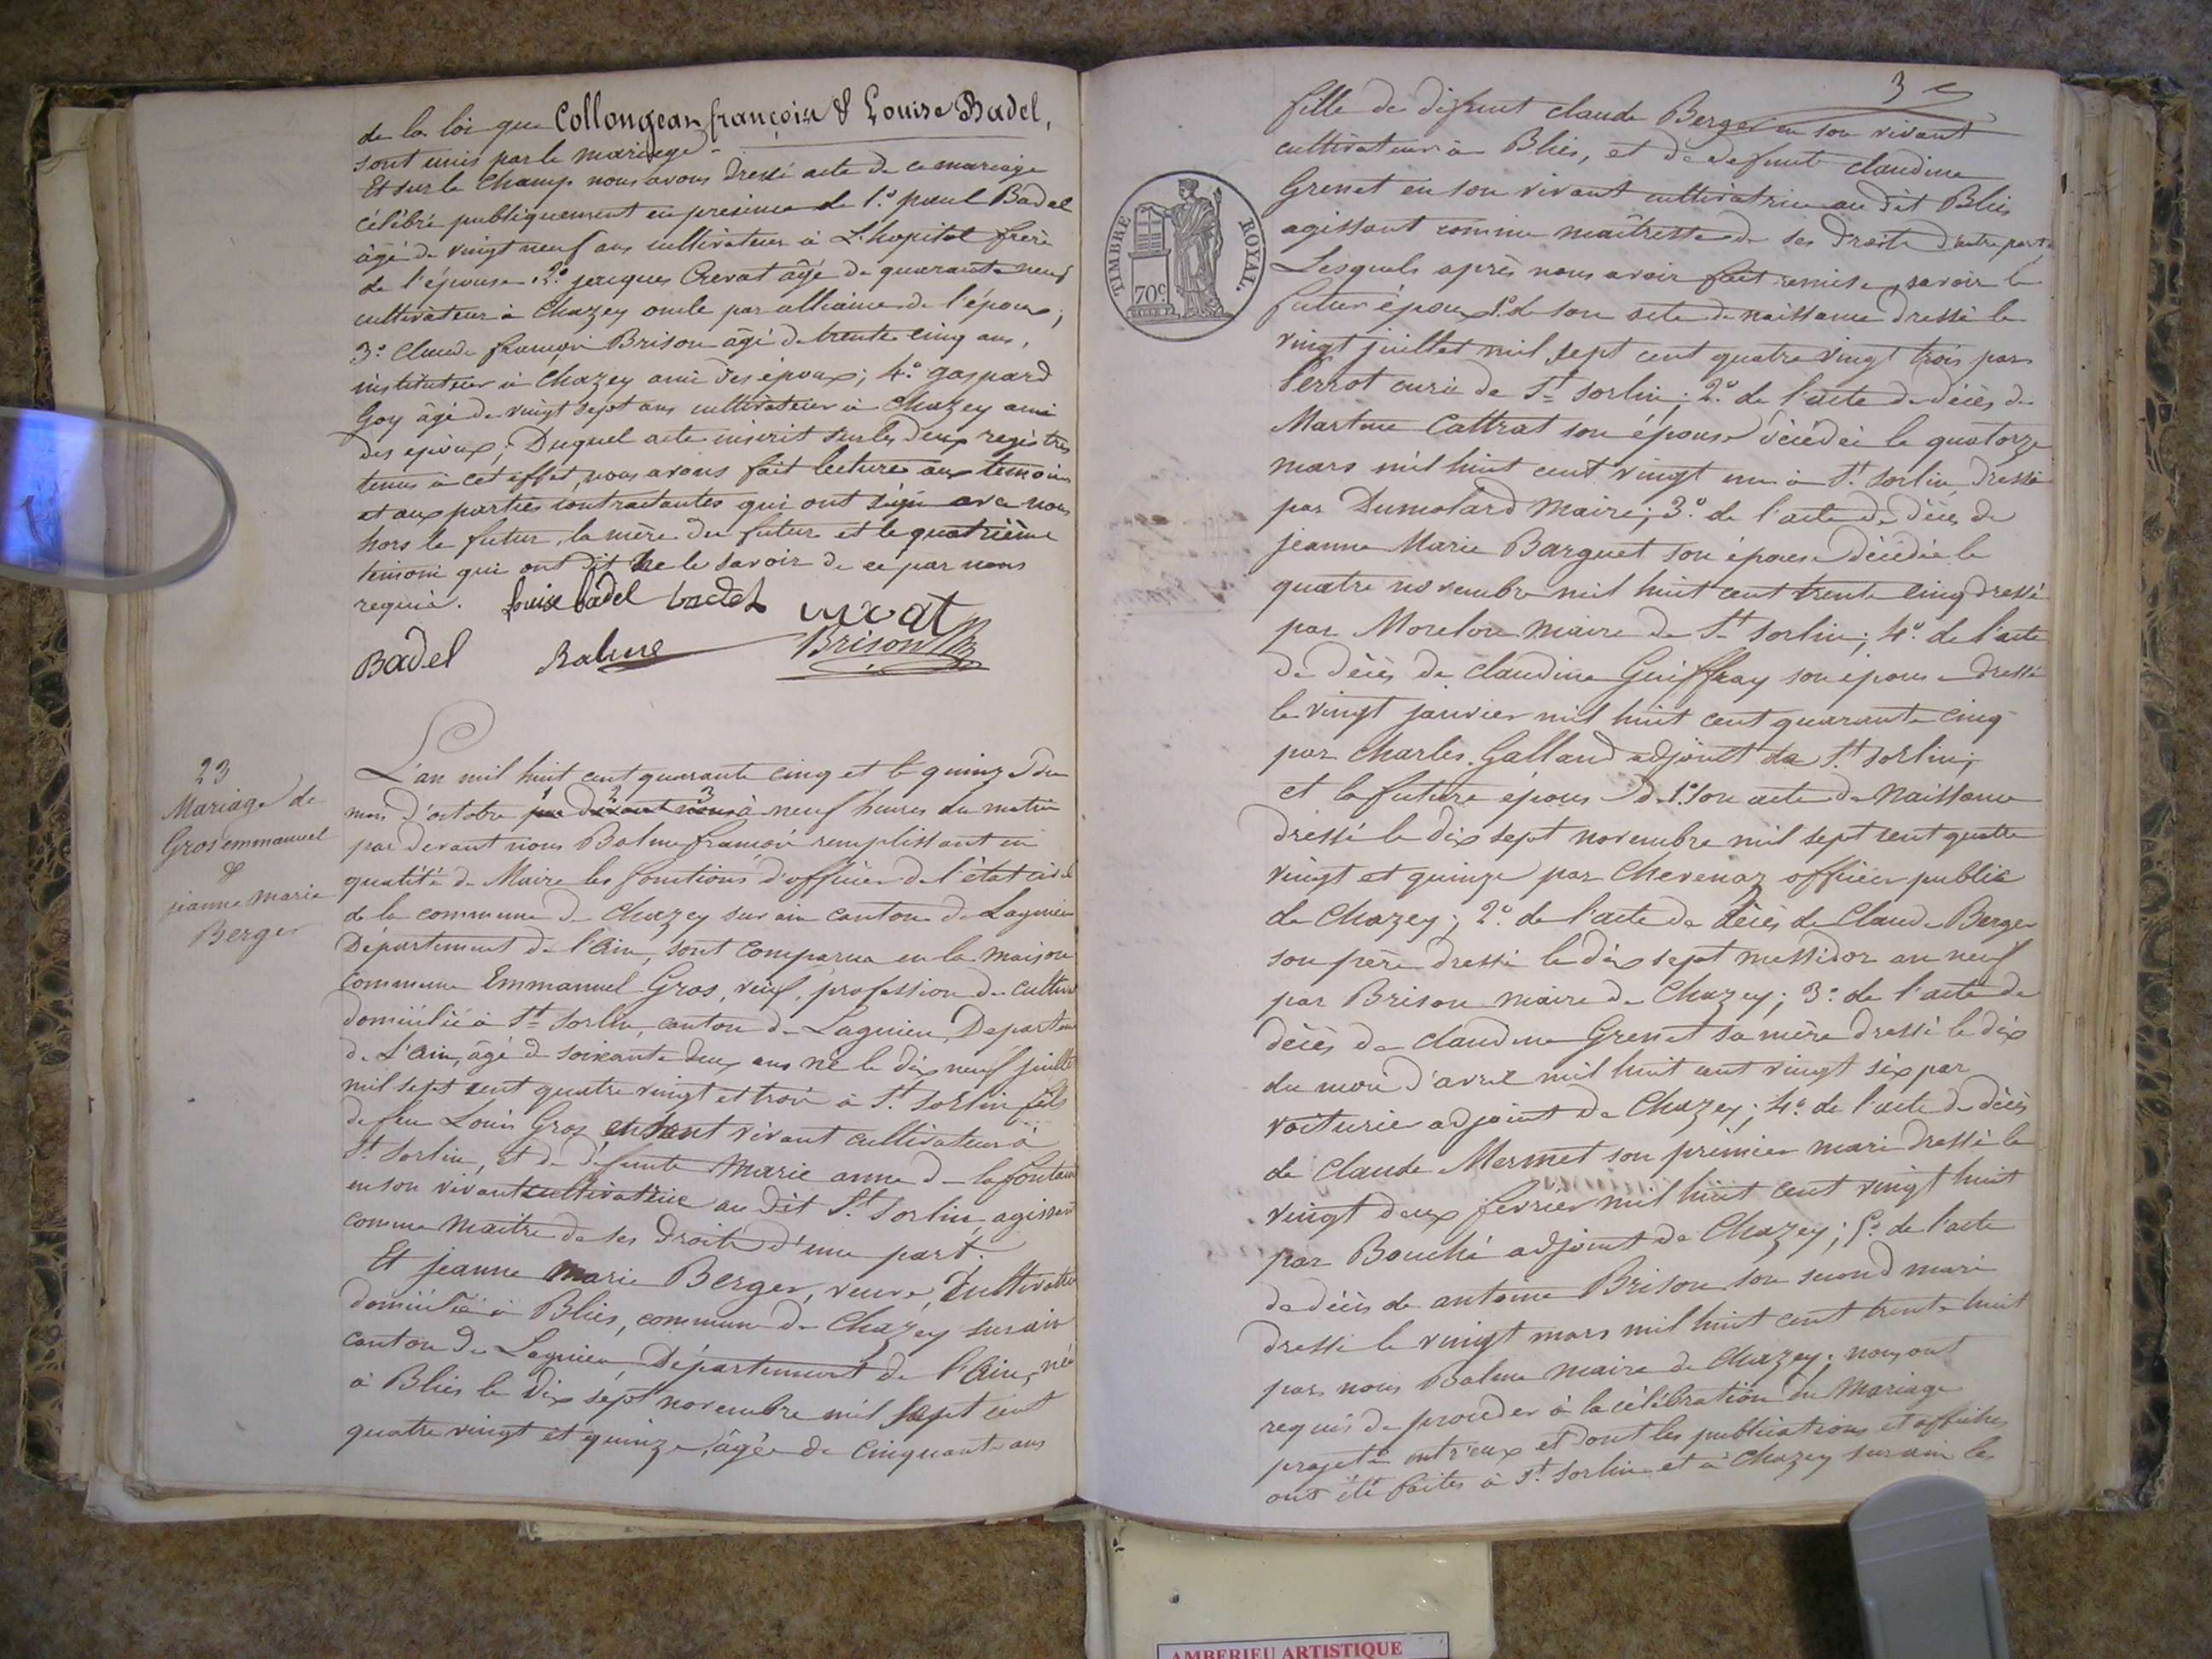 de la loi que Collongeat françois & Louise Badel,
sont unis par le mariage.
Et sur le champ nous avons dressé acte de ce mariage
célébré publiquement en présence de 1.° paul Badel
âgé de vingt neuf ans cultivateur à L'hopital frère
de l'épouse. 2.° jacques Crevat âgé de quarante neuf
cultivateur à Chazey oncle par alliance de l'époux;
3.° Claude françois Brison âgé de trente cinq ans,
instituteur à Chazey ami des époux; 4.° gaspard
Goy âgé de vingt sept ans cultivateur à Chazey ami
des époux; Duquel acte inscrit sur les deux registres
tenus à cet effet, nous avons fait lecture aux temoins
et aux parties contractantes qui ont signé avec nous
hors le futur, la mère du futur et le quatrième
temoin qui ont dit ne le savoir de ce par nous
requis. Louise badel badel crevat
Badel Balme Brison
23
Mariage de
Gros emmanuel
&
jeanne marie
Berger
L'an mil huit cent quarante cinq et le quinze du
mois d'octobre par devant nous à neuf heures du matin
par devant nous Balme françois remplissant en
qualité de Maire les fonctions d'officier de l'état civil
de la commune de Chazey sur ain canton de Lagnieu
Département de l'Ain, sont comparus en la maison
commune Emmanuel Gros, veuf, profession de cultiv
domicilié à St. Sorlin, canton de Lagnieu, Departem
de L'Ain, âgé de soixante deux ans né le dix neuf juillet
mil sept cent quatre vingt et trois à St. Sorlin fils
de feu Louis Gros en son vivant cultivateur à
St. Sorlin, et de défunte Marie anne de lafontaine
en son vivant cultivatrice au dit St. Sorlin, agissant
comme maitre de ses droits d'une part;
Et jeanne Marie Berger, veuve, cultivatrice
domiciliée à Blies, commune de Chazey sur ain
canton de Lagnieu, Département de l'Ain, née
à Blies le dix sept novembre mil sept cent
quatre vingt et quinze, âgée de cinquante ans
3
fille de défunt claude Berger en son vivant
cultivateur à Blies, et de defunte claudine
Grenet en son vivant cultivatrice au dit Blies
agissant comme maîtresse de ses droits d'autre part.
TIMBRE ROYAL.
70c
Lesquels après nous avoir fait remise, savoir le
futur époux 1.° de son acte de naissance dressé le
vingt juillet mil sept cent quatre vingt trois par
Perrot curé de St. Sorlin; 2.° de l'acte de décès de
Martine Cattrat son épouse décédée le quatorze
mars mil huit cent vingt un à St. Sorlin, dressé
par Dumolard Maire; 3.° de l'acte de décès de
jeanne Marie Barguet son épouse décédée le
quatre novembre mil huit cent trente cinq dressé
par Morelon maire de St. Sorlin; 4.° de l'acte
de décès de claudine Guiffray son épouse dressé
le vingt janvier mil huit cent quarante cinq
par Charles Galland adjoint de St. Sorlin;
et la future épouse de 1.° son acte de Naissance
dressé le dix sept novembre mil sept cent quatre
vingt et quinze par Chevenoz officier public
de Chazey; 2.° de l'acte de décès de Claude Berger
son père dressé le dix sept messidor an neuf
par Brison maire de Chazey; 3.° de l'acte de
décès de claudine Grenet sa mère dressé le dix
du mois d'avril mil huit cent vingt six par
voiturier adjoint de Chazey; 4.° de l'acte de décès
de Claude Mermet son premier mari dressé le
vingt deux février mil huit cent vingt huit
par Bouché adjoint de Chazey; 5.° de l'acte
de décès de antoine Brison son second mari
dressé le vingt mars mil huit cent trente huit
par nous Balme maire de Chazey; nous ont
requis de procéder à la célébration du Mariage
projeté entr'eux et dont les publications et affiches
ont été faites à St. Sorlin et à Chazey sur ain les
AMBERIEU ARTISTIQUE